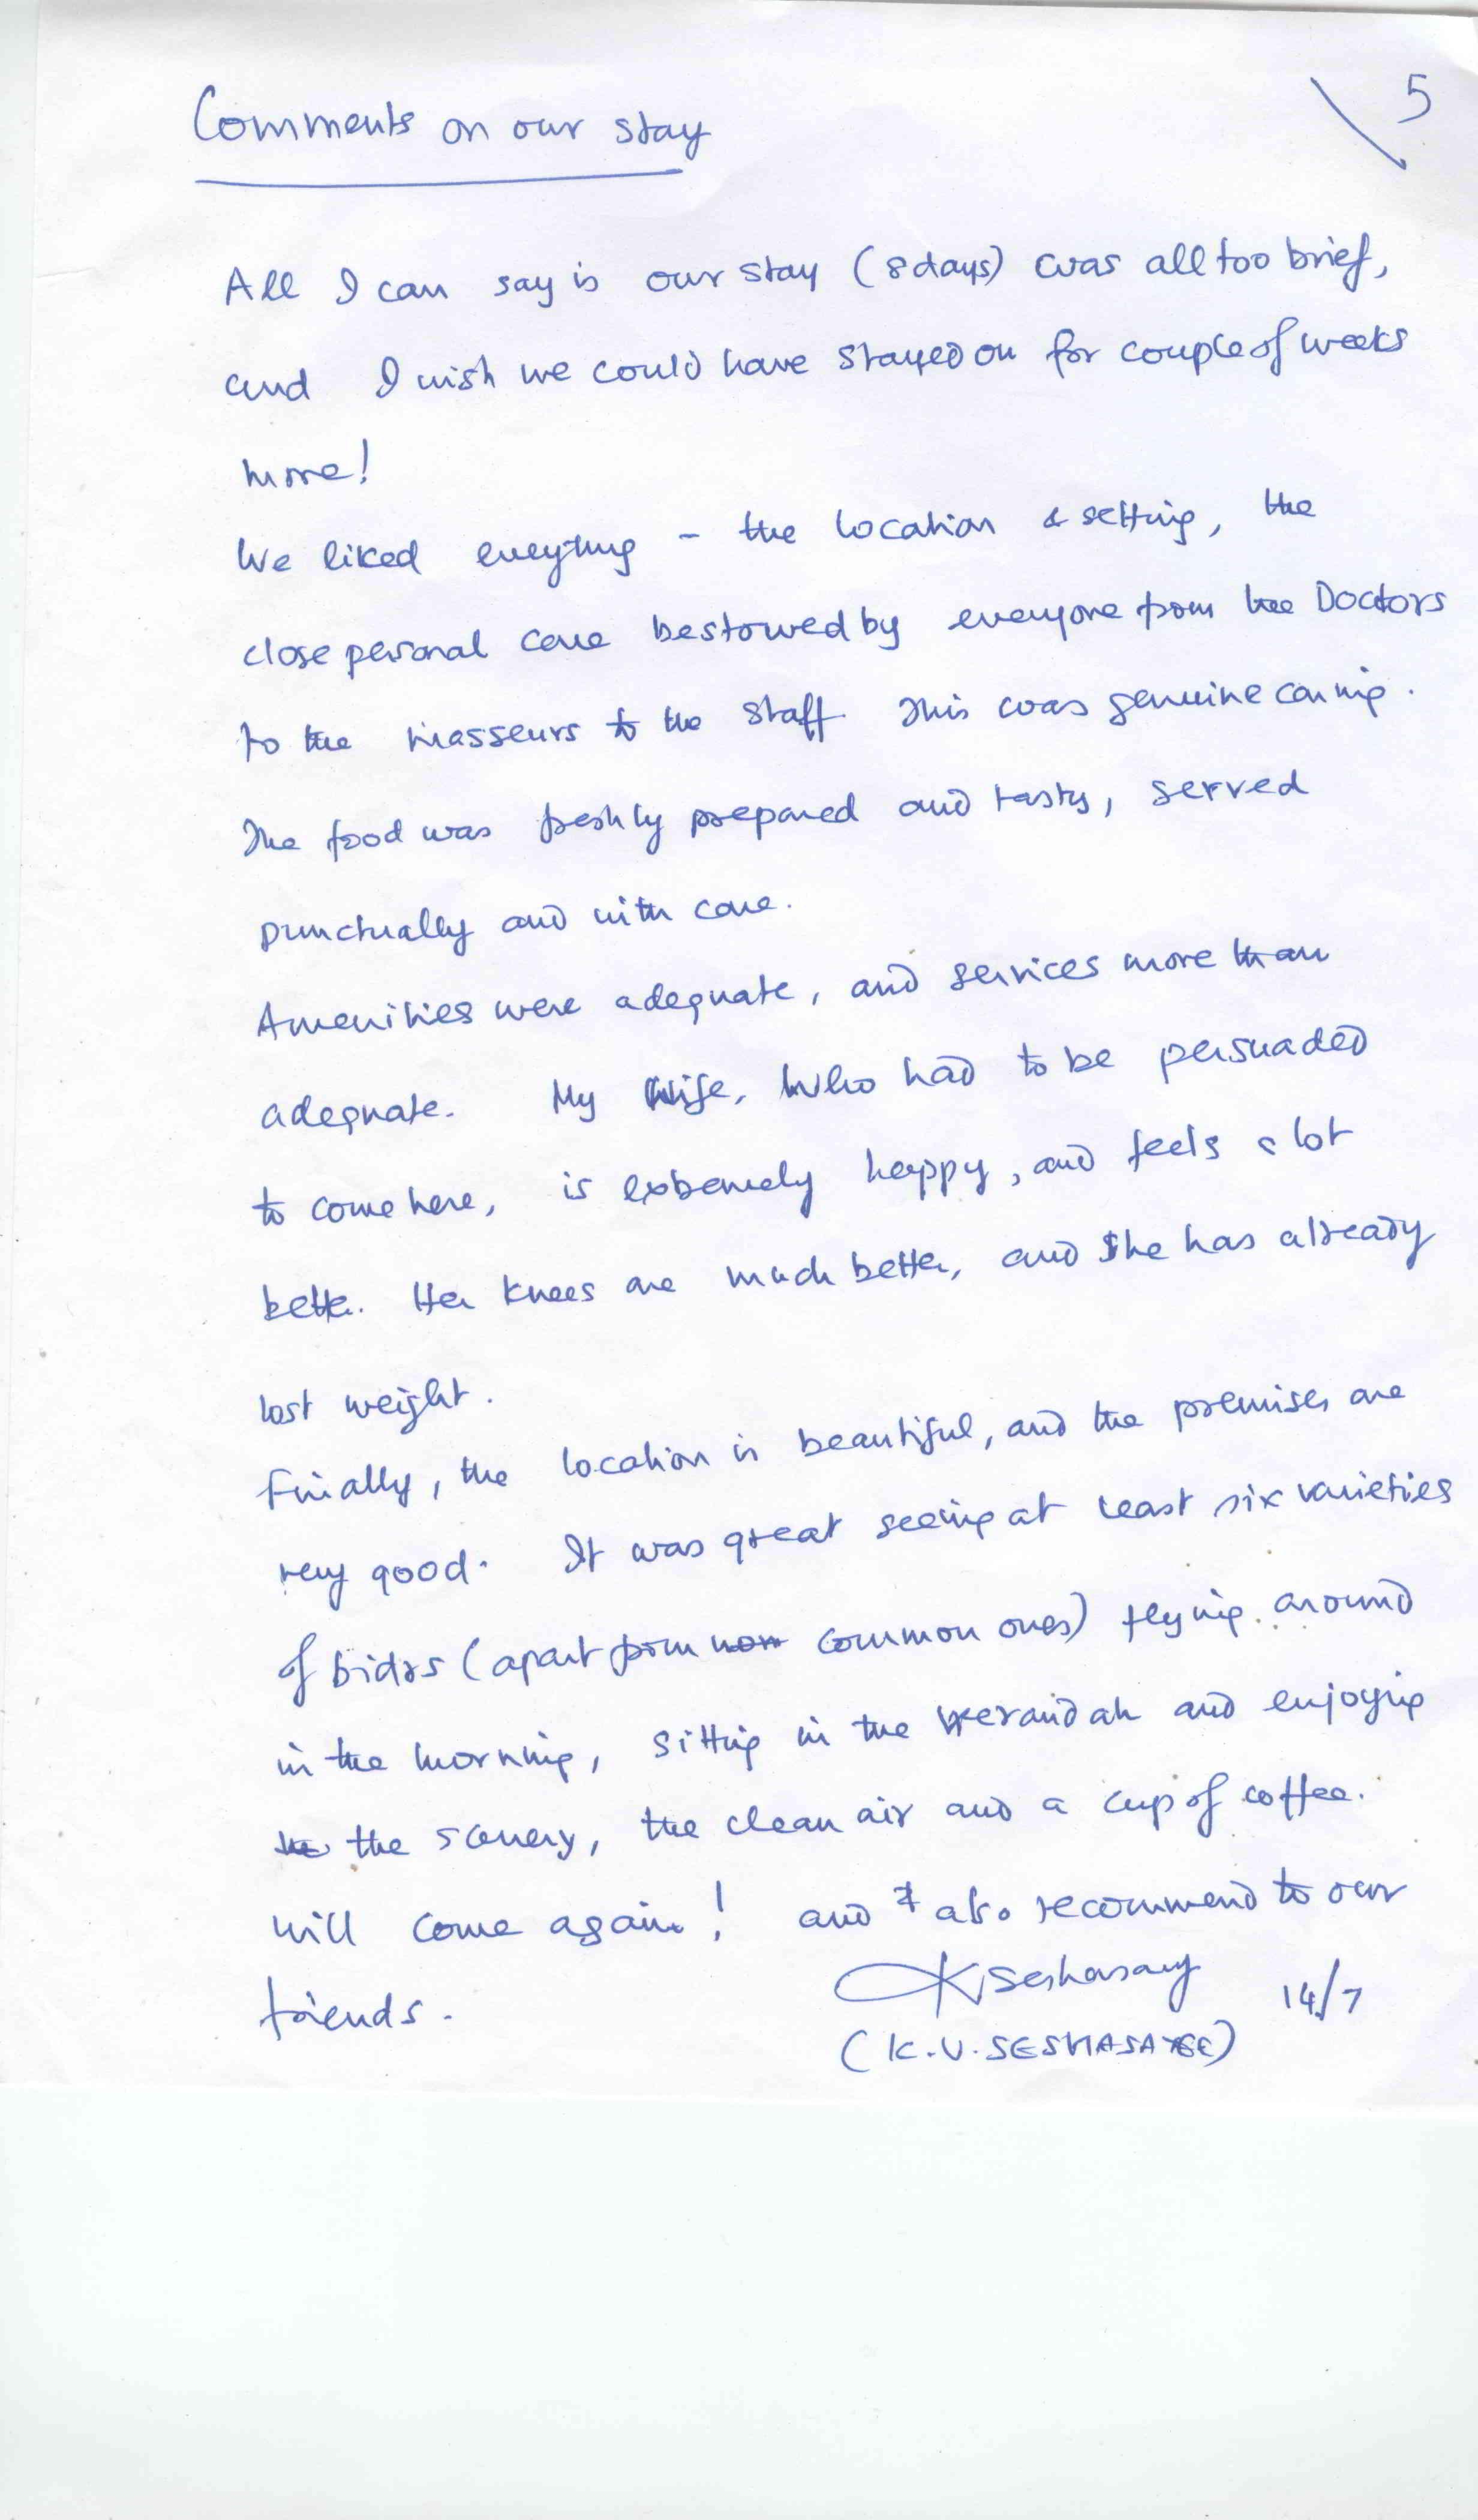 5
Comments on our stay
All I can say is our stay (8 days) was all too brief,
and I wish we could have stayed on for couple of weeks
more!
We liked everything - the location & setting, the
close personal care bestowed by everyone from the Doctors
to the masseurs to the staff. This was genuine caring.
The food was freshly prepared and tasty, served
punctually and with care.
Amenities were adequate, and services more than
adequate. My Wife, who had to be persuaded
to come here, is extremely happy, and feels a lot
better. Her knees are much better, and She has already
lost weight.
Finally, the location is beautiful, and the premises are
very good. It was great seeing at least six varieties
of bidrs (apart from common ones) flying around
in the morning, sitting in the verandah and enjoying
the scenery, the clean air and a cup of coffee.
Will come again! and also recommend to our
friends.
KSeshasayee 14/7
(K.V. SESHASAYEE)